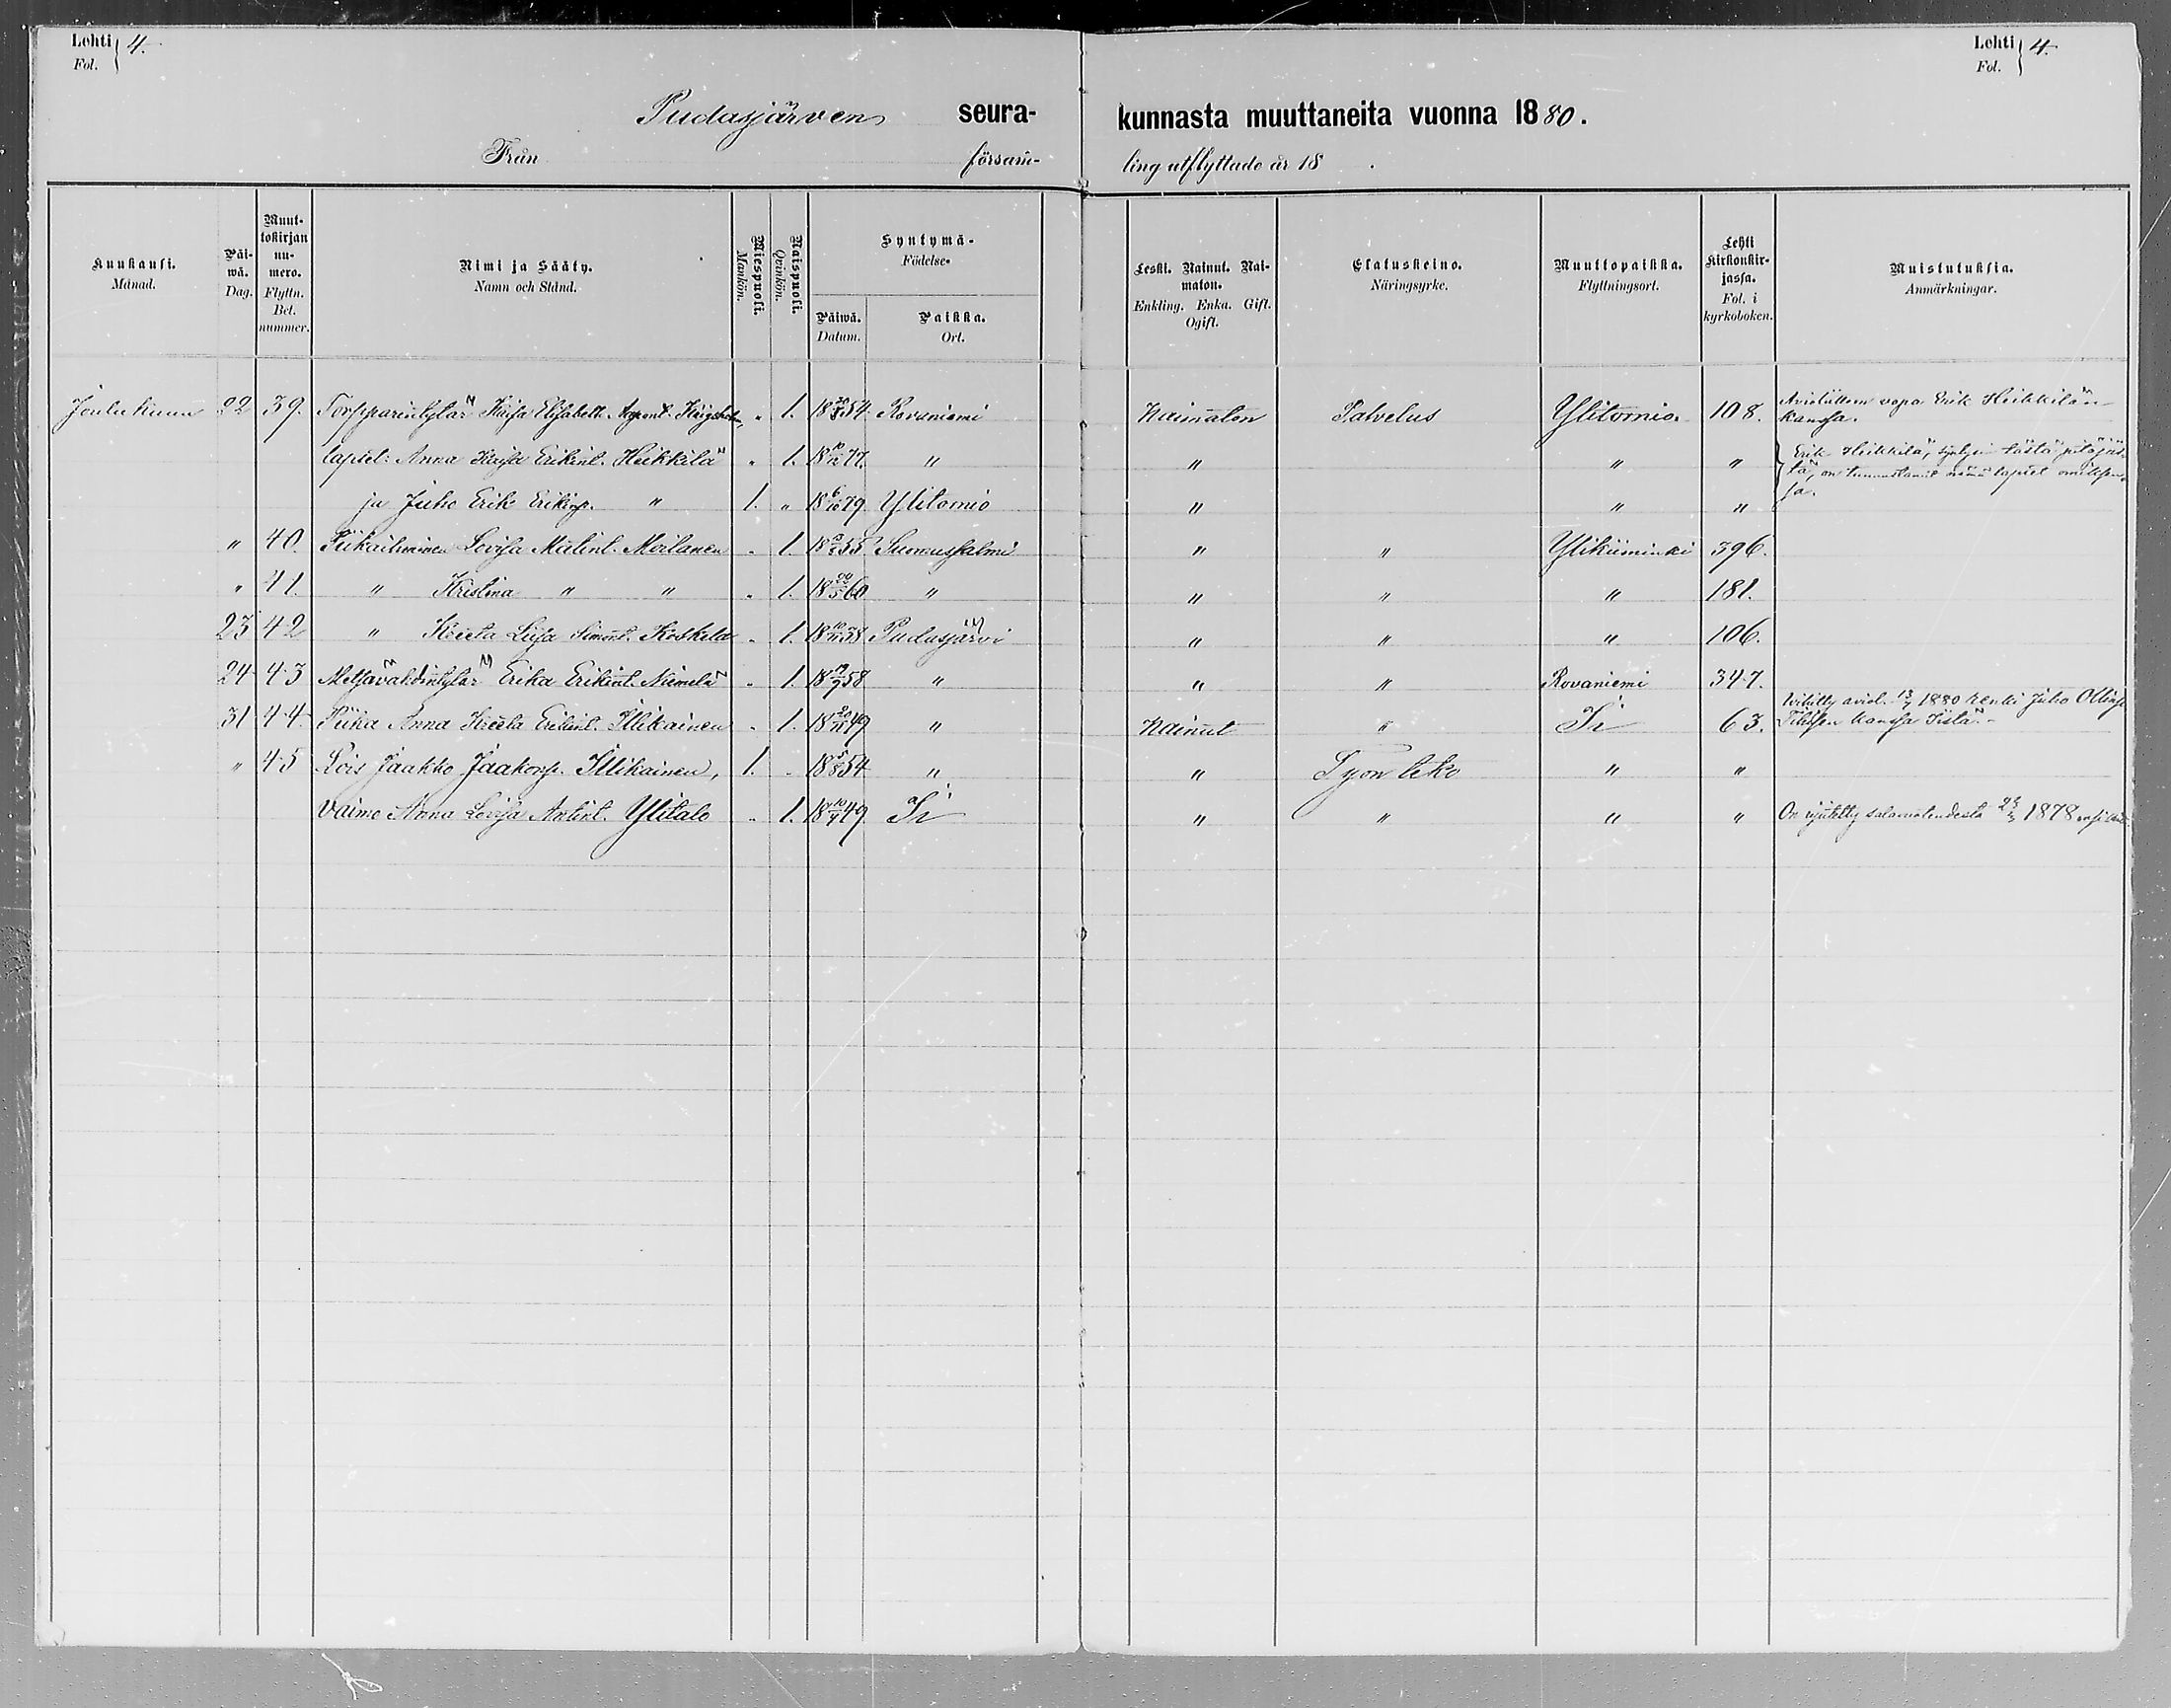 Lehti 4.
Fol.
Lehti 4.
Fol.
Pudasjärven seura- kunnasta muuttaneita vuonna 1880.
Från församling utflyttade år 18 .
Kuukausi. Månad.
Päiwä. Dag.
Muuttokirjan numero. Flyttn. Bet. nummer.
Nimi ja Sääty. Namn och Stånd.
Miespuoli. Mankön.
Naispuoli. Qvinkön.
Syntymä- Födelse-
Päiwä. Datum.
Paikka. Ort.
Leski. Nainut. Naimaton. Enkling. Enka. Gift. Ogift.
Elatuskeino. Näringsyrke.
Muuttopaikka. Flyttningsort.
Lehti kirkonkirjassa. Fol. i kyrkoboken.
Muistutuksia. Anmärkningar.
Joulukuun 22 39. Torpparintytär Kaisa Elisabeth " 1. 1854 Rovaniemi Naimaton Palvelus Ylitornio 108. vapa Erik Heikkilän kanssa.
lapset: Anna Kaisa Erikint. Heikkilä " 1. 1877. " " " " Erik Heikkilä, tästä
ja Juho Erik Erikinp. " 1. " 18 6/10 79 Ylitornio " " " lapset
" 40. Lovisa Matint. Moilanen " 1. 1855 Suomussalmi " " Ylikiiminki 396.
" 41. " Kristina " " " 1. 1860 " " " " 181.
23 42 " Kreeta Liisa Simont. Koskela " 1. 1858 Pudasjärvi " " " 106.
24 43 Metsävahdintytär Erika Erikint. Niemelä " 1. 1858 " " " Rovaniemi 347.
31 44. Piika Anna Kreeta Erikint. Illikainen " 1. 1849 " Nainut " Ii 63. 1880 renki Juho kanssa Iistä.
" 45 Lois Jaakko Jaakonp. Illikainen, 1. " 1854 " " Työn teko " "
Vaimo Anna Lovisa Antint. Ylitalo " 1. 1849. Ii " " " " On 1878